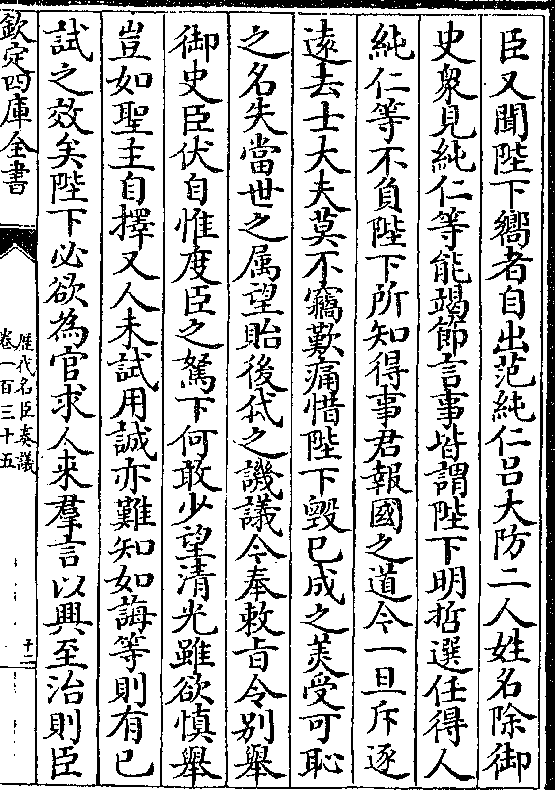 臣又聞陛下嚮者自出范純仁呂大防二人姓名除御
史衆見純仁等能竭節言事皆謂陛下明哲選任得人
純仁等不負陛下所知得事君報國之道今一旦斥逐
逺去士大夫莫不竊歎痛惜陛下毁已成之羙受可恥
之名失當世之属望貽後代之譏議今奉敕旨令别舉
御史臣伏自惟度臣之駑下何敢少望清光雖欲慎舉
豈如聖主自擇又人未試用誠亦難知如誨等則有已
試之效矣陛下必欲為官求人来羣言以興至治則臣
欽定四庫全書
歴代名臣奏議
卷一百三十五
十二